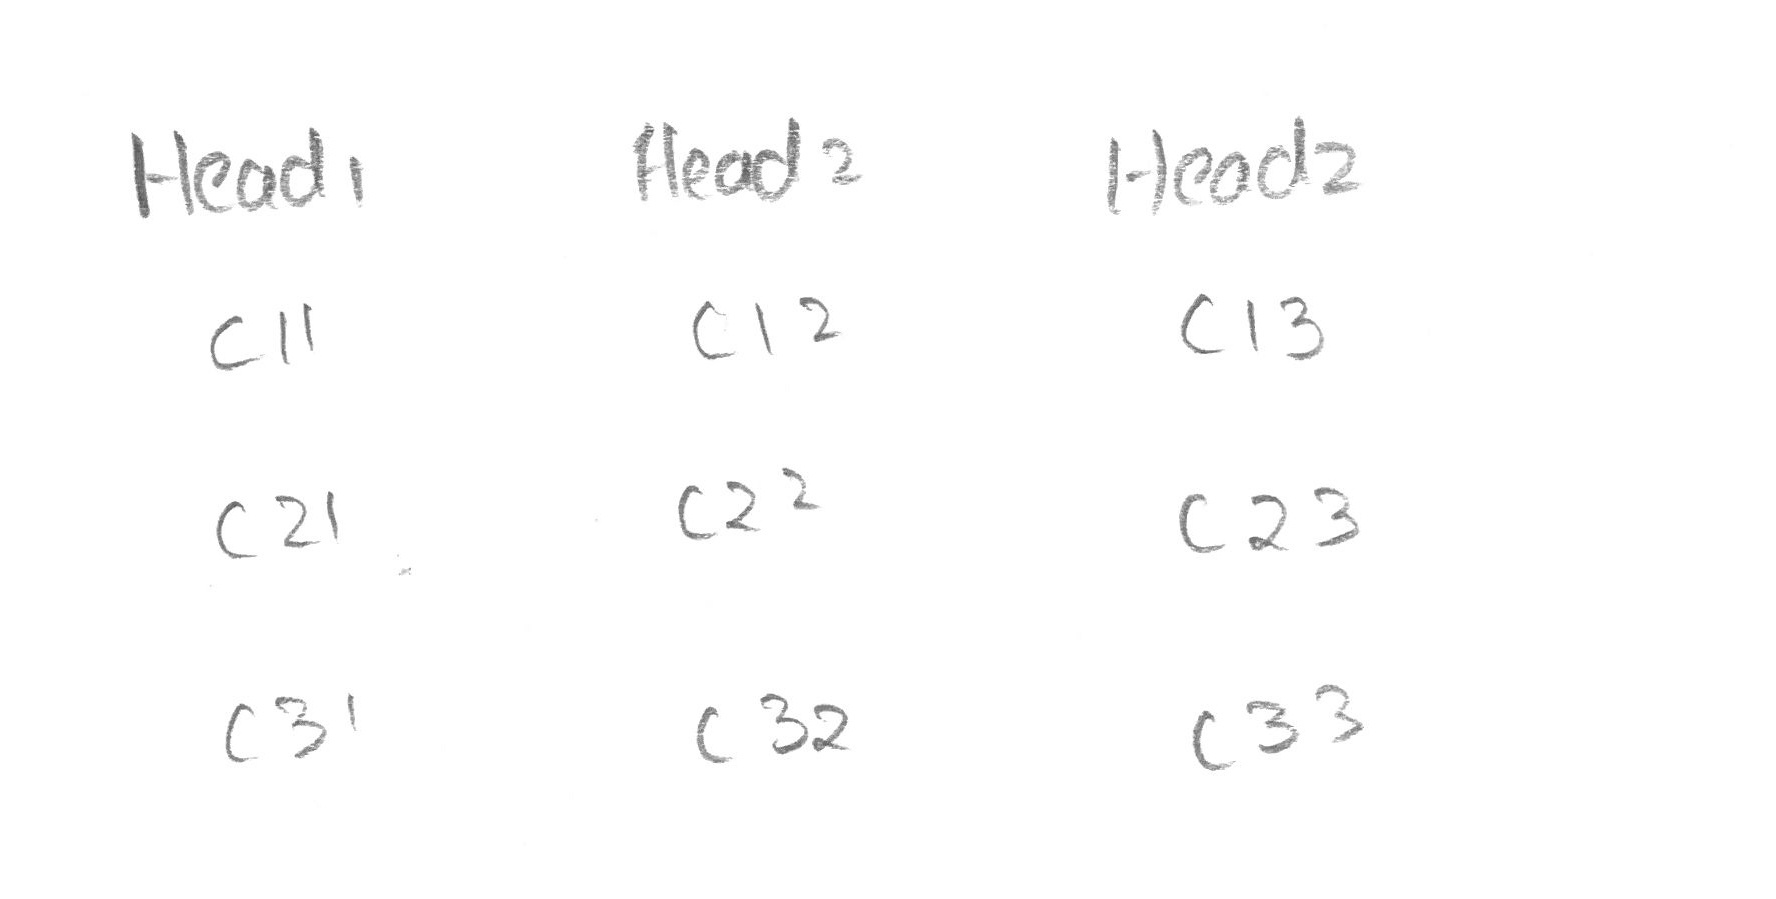 Head1 Head2 Head2
C11 C12 C13
C21 C22 C23
C31 C32 C33